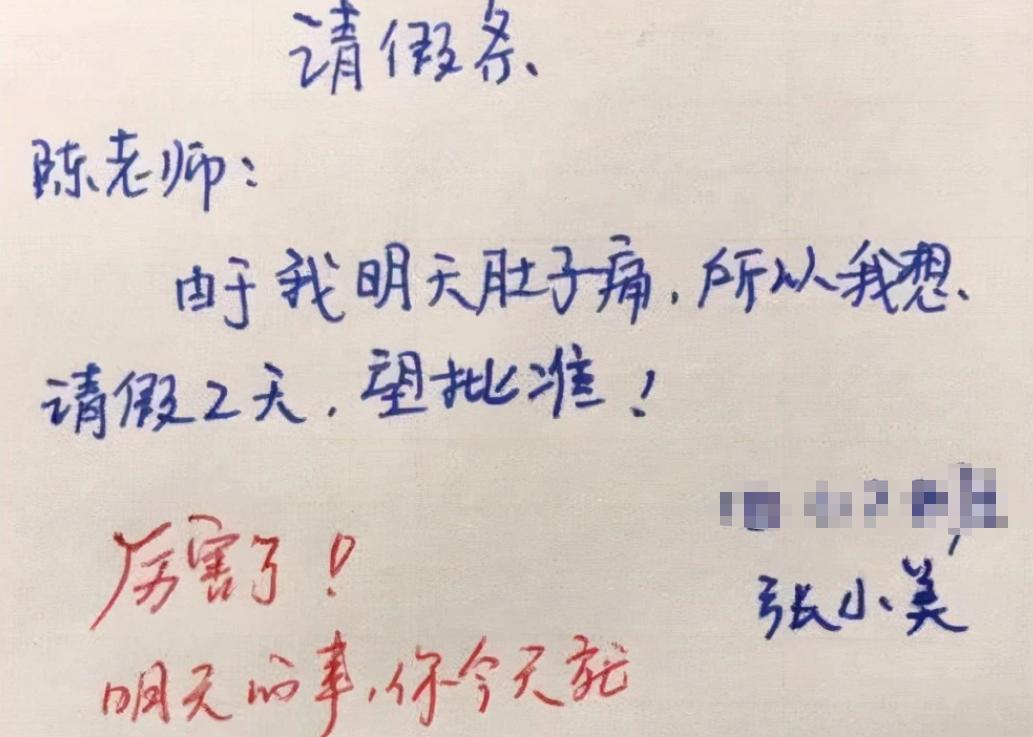 请假条
陈老师：
由于我明天肚子痛，所以我想
请假2天，望批准！
张小美
厉害了！
明天的事，你今天就